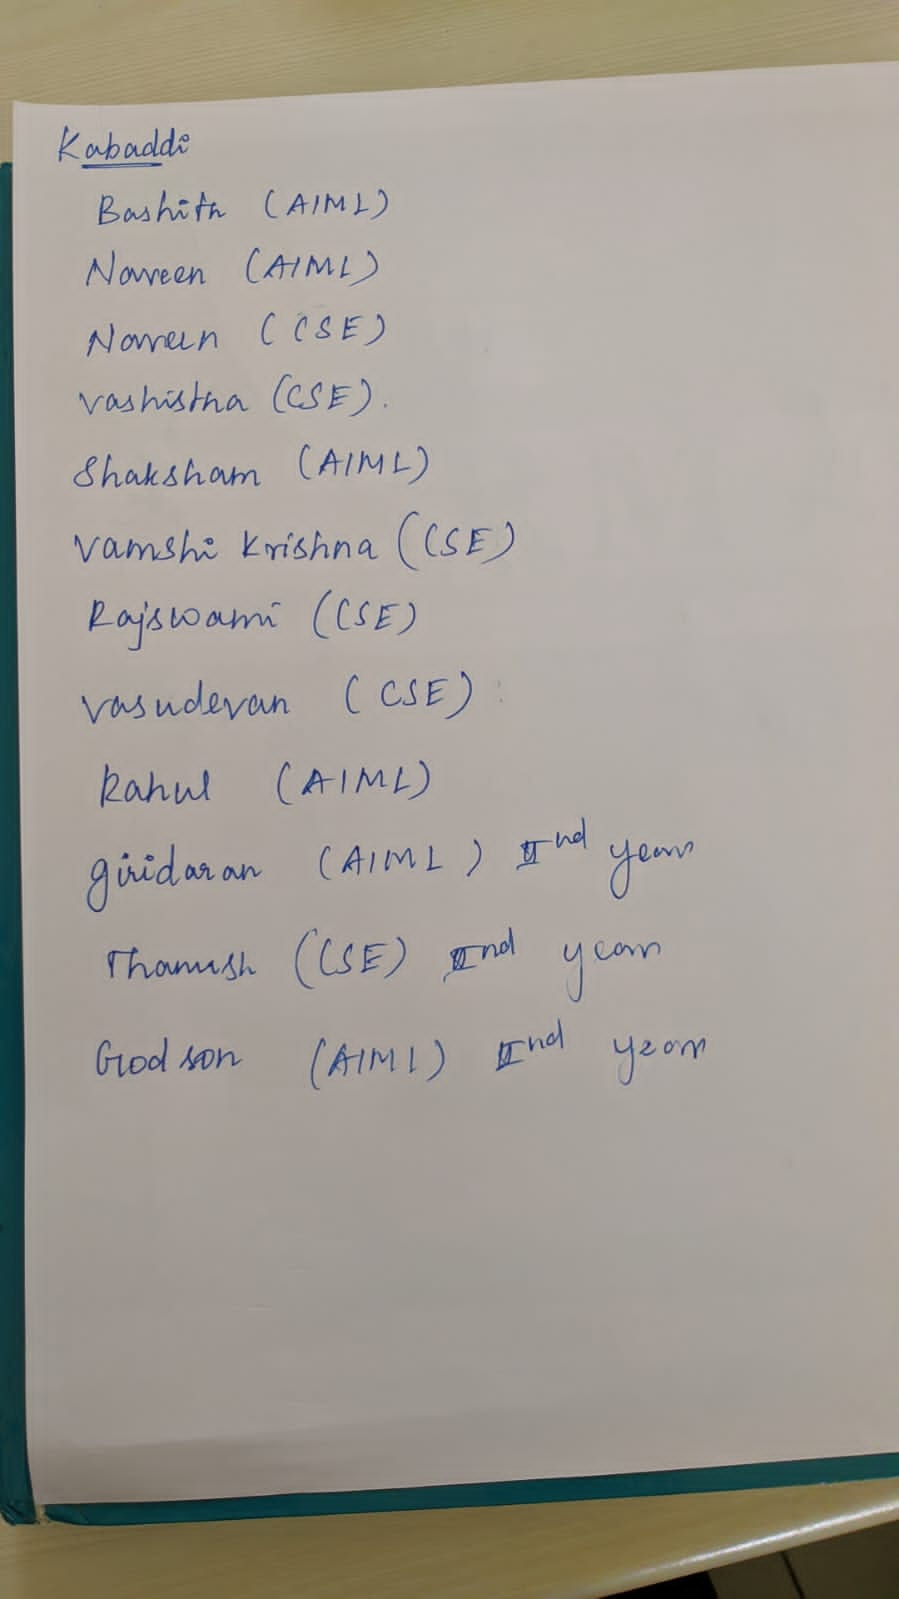 Kabaddi
Bashith (AIML)
Naveen (AIML)
Naveen (CSE)
Vashistha (CSE).
Shaksham (AIML)
Vamshi Krishna (CSE)
Rajswami (CSE)
Vasudevan (CSE)
Rahul (AIML)
giridaran (AIML) IInd year
Thanush (CSE) IInd year
Godson (AIML) IInd year